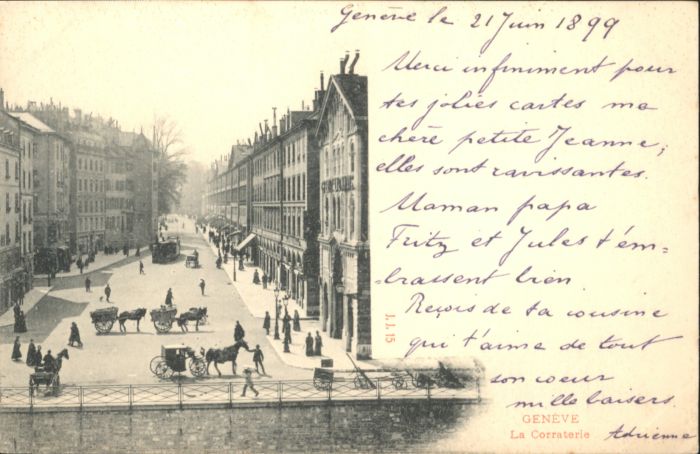 Genève le 21 Juin 1899
Merci infiniment pour
tes jolies cartes ma
chère petite Jeanne,
elles sont ravissantes.
Maman papa
Fritz et Jules t'em-
brassent bien
Reçois de ta cousine
qui t'aime de tout
son coeur
mille baisers.
Adrienne
J.J. 15
GENÈVE
La Corraterie